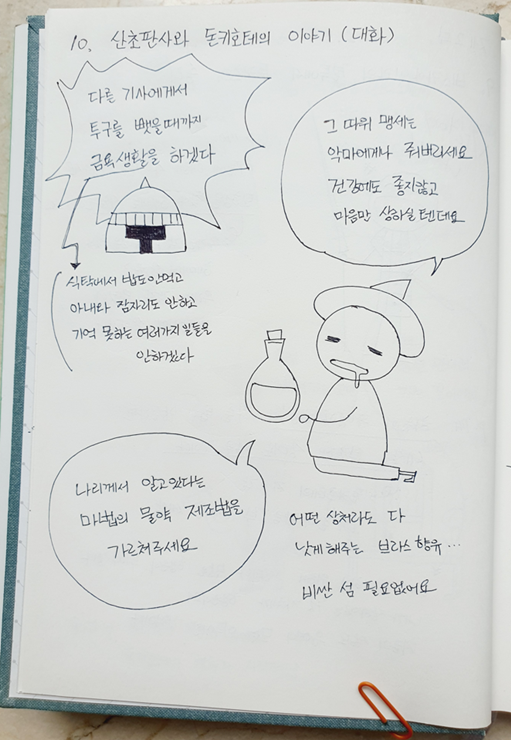 10. 산초판사와 돈키호테의 이야기 (대화)
다른 기사에게서
투구를 뺏을때까지
금욕생활을 하겠다
식탁에서 밥도안먹고
아내랑 잠자리도 안하고
기억 못하는 여러가지 일들을
안하겠다
그 따위 맹세는
악마에게나 줘버리세요
건강에도 좋지않고
마음만 상하실텐데요
나리께서 알고있다는
마법의 물약 제조법을
가르쳐주세요
어떤 상처라도 다
낫게해주는 브라스 향유...
비싼 섬 필요없어요